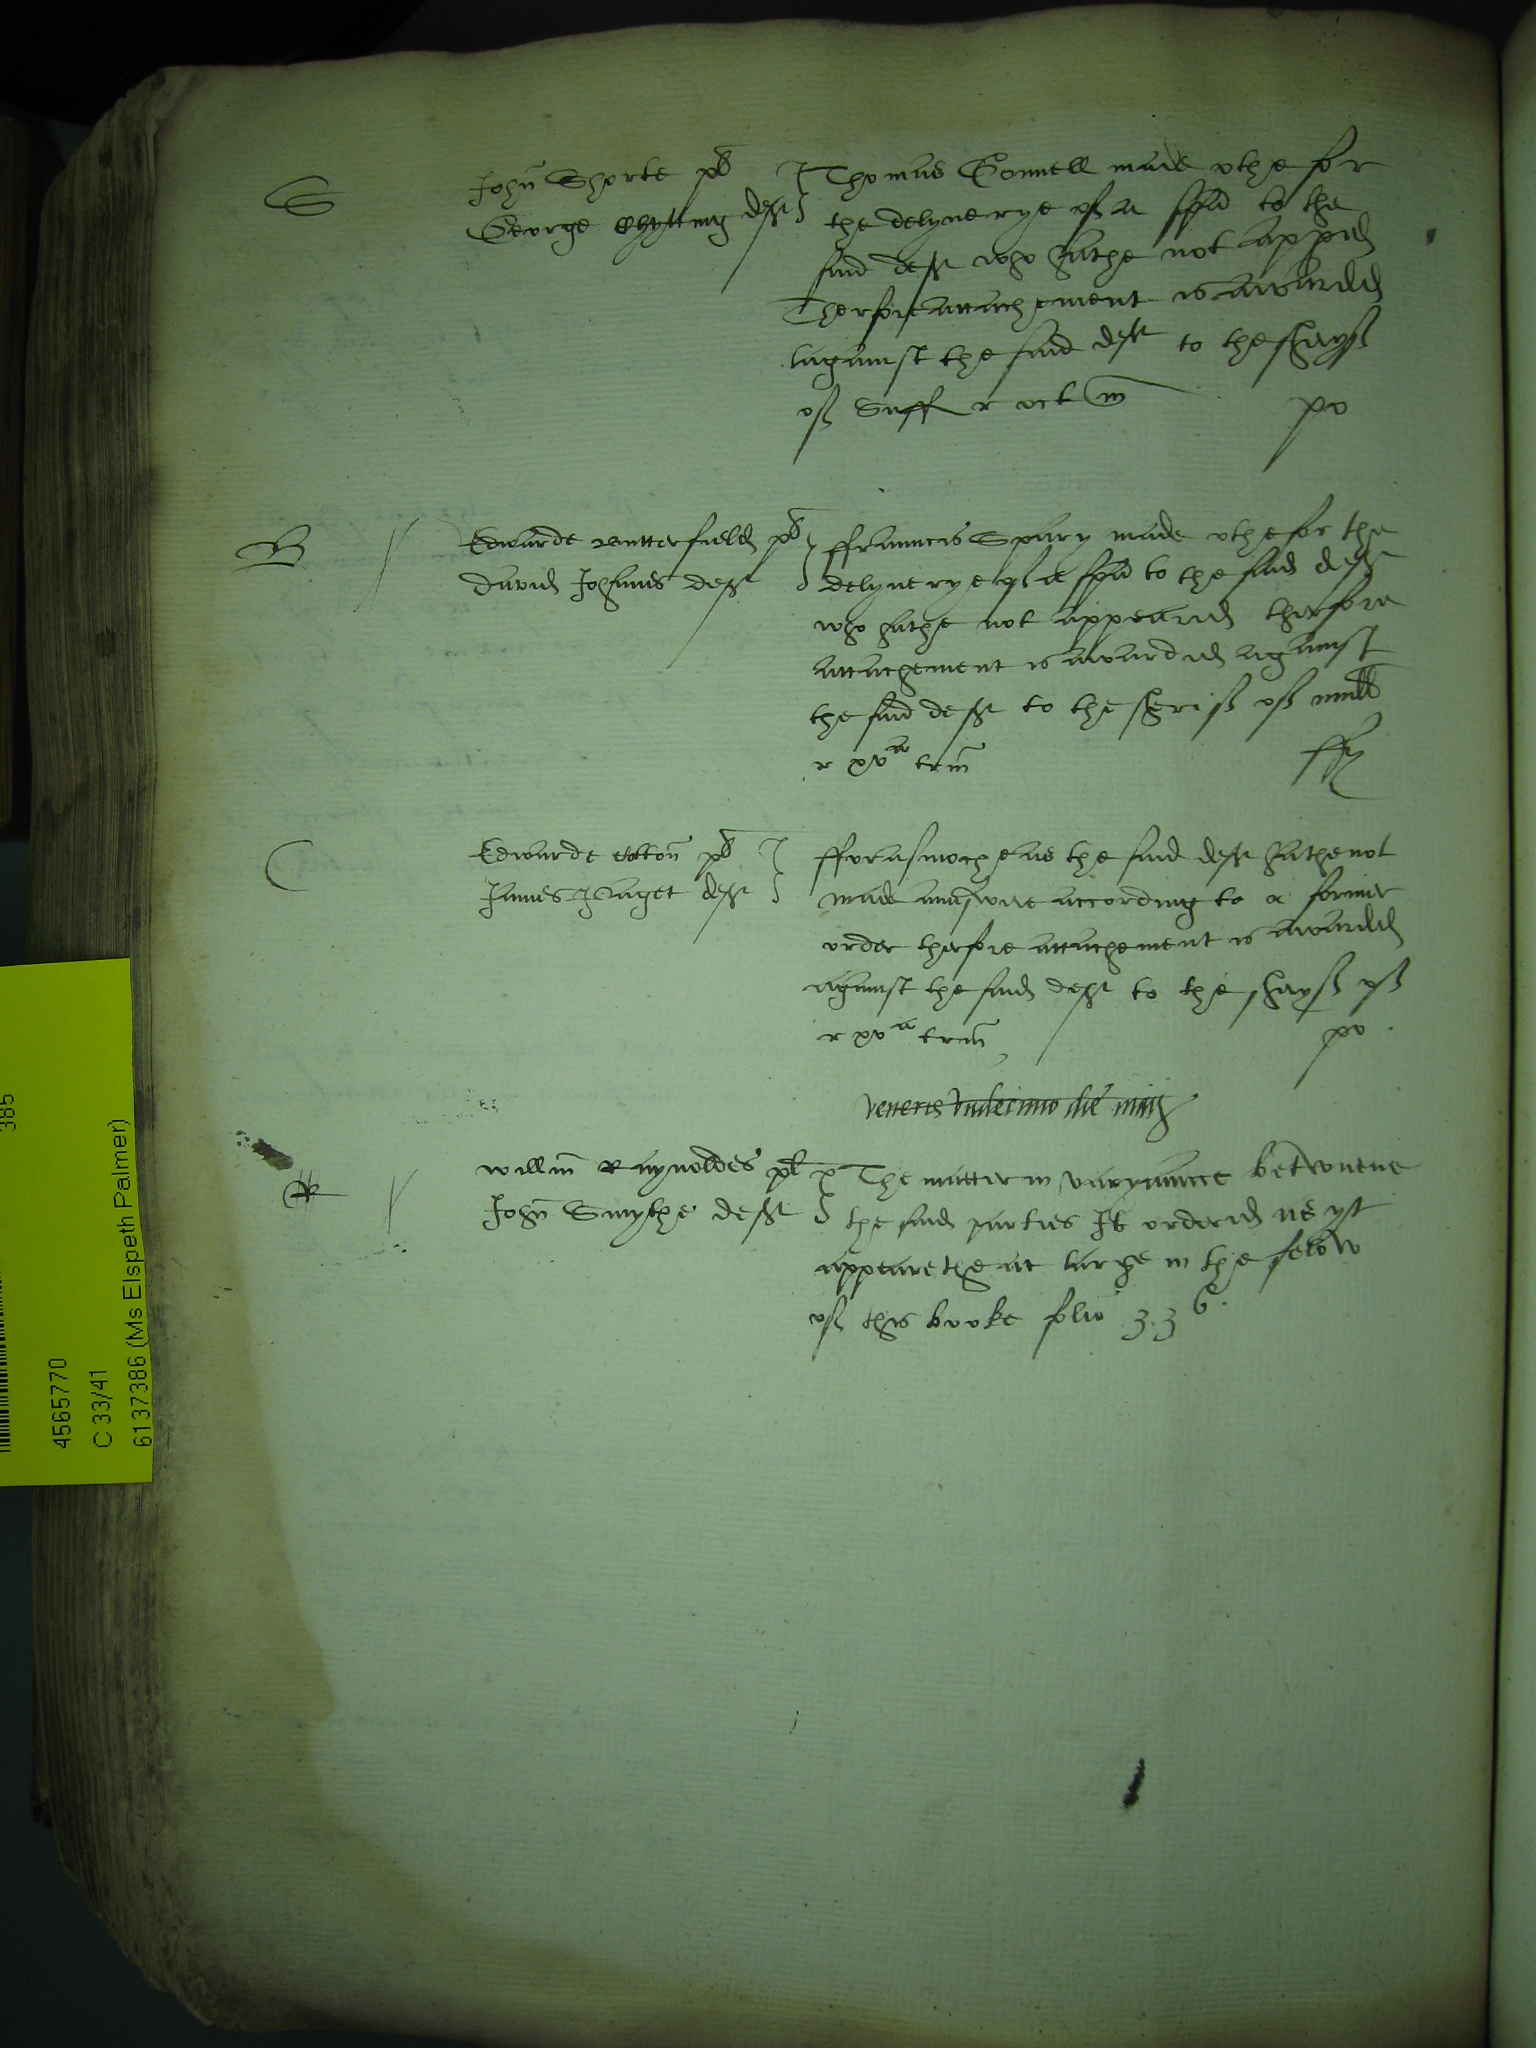 S
John Shorte pl
George Whyttmg deft
Thomas Gonnell made othe for
the delyuerye of a spa to the
said deft who hathe not appd
Therfore attachement is awarded
against the said deft to the shryff
of Suff r oct m
po
B
Edwarde Butterfield pl
David Johannes deft
Ffrauncis Spary made othe for the
delyuerye of a spa to the said deft
who hathe not appeared therfore
attachement is awarded against
the said deft to the sherif of
r xva trin
ffy
C
Edwarde Cotton pl
James Paget deft
Fforasmoche as the said deft hathe not
made aunswere according to a former
order therfore attachement is awarded
against the said deft to the shryff of
r xva trin
po
Veneris Undecimo die Maij
R
Willm Raynoldes pl
John Smythe deft
The matter in varyaunce betwuene
the said parties Is ordered as yt
appearethe at large in the
of this booke folio 336.
4565770
C 33/41
6137386 (Ms Elspeth Palmer)
385